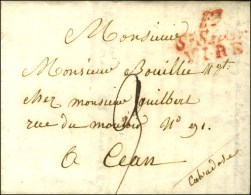 Monsieur
Monsieur Bouillie Nt.
chez monsieur Guilbert
rue du moulin N° 91.
A Caen
Calvados